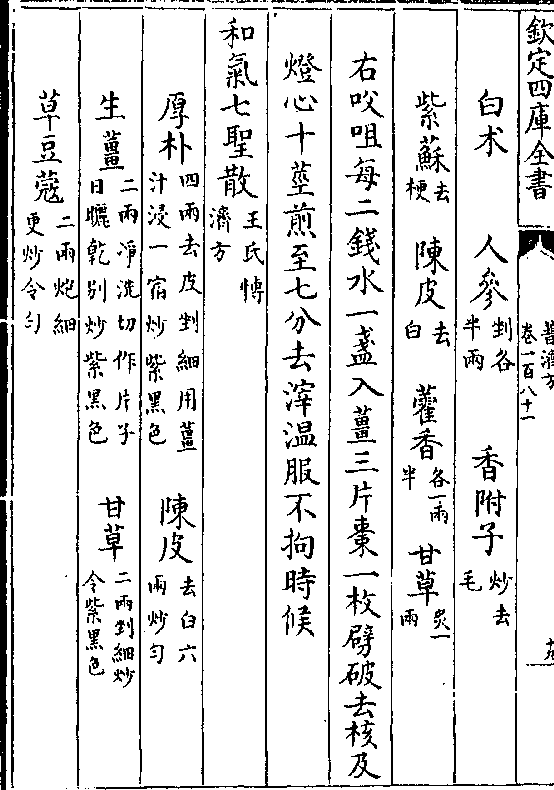 欽定四庫全書
普濟方
卷一百八十一
白术 人參剉各半兩 香附子炒去毛
紫蘇去梗 陳皮去白 藿香各一兩半 甘草炙一兩
右㕮咀每二錢水一盞入薑三片棗一枚劈破去核及
燈心十莖煎至七分去滓温服不拘時候
和氣七聖散王氏博濟方
厚朴四兩去皮剉細用薑汁浸一宿炒紫黑色 陳皮去白六兩炒匀
生薑二兩浄洗切作片子日曬乾别炒紫黑色 甘草二兩剉細炒令紫黑色
草豆蔻二兩炮細更炒令匀